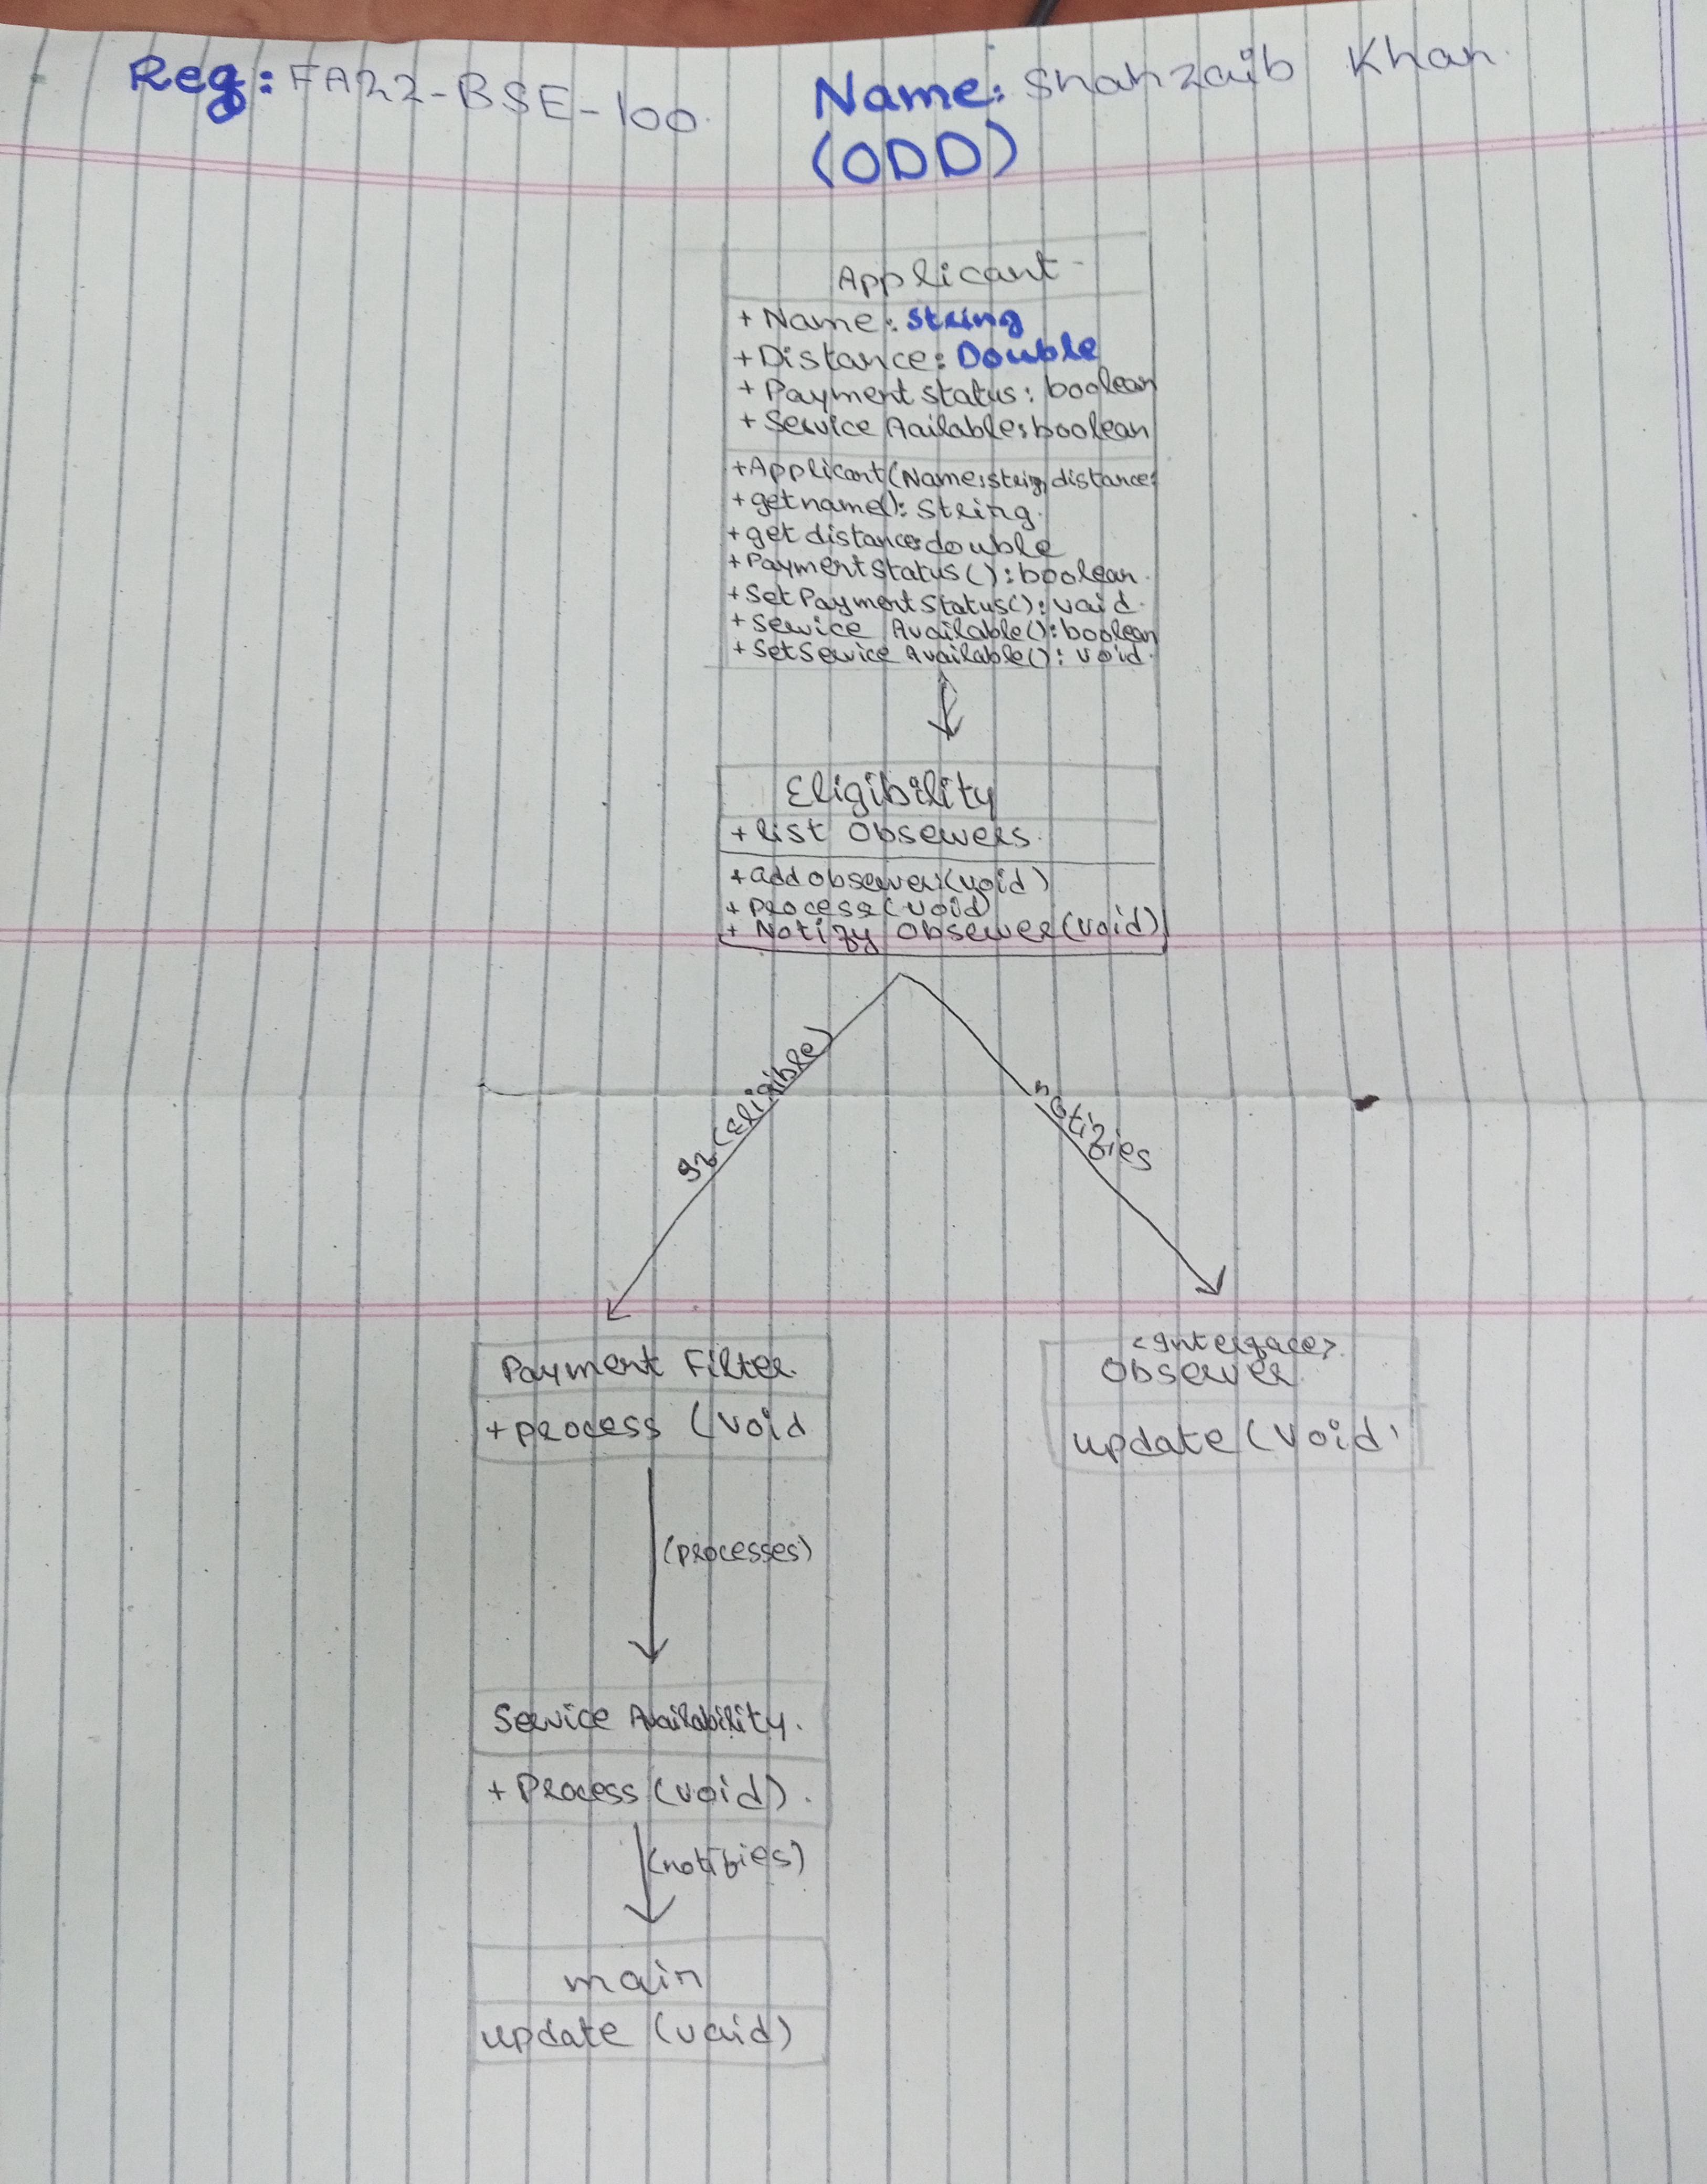 Reg: FA22-BSE-100. Name: Shahzaib Khan.
(ODD)
Applicant
+ Name: String
+ Distance: Double
+ Payment status: boolean
+ Service Aailable: boolean
+ Applicant (Name: string, distance:
+ getname(): String.
+ get distance: double
+ Payment status(): boolean.
+ Set Payment Status(): void.
+ Service Available(): boolean
+ Set Service Available(): void.
Eligibility
+ list Observers.
+ add observer (void)
+ Process (void)
+ Notify Observer (void)
If (Eligible)
notifies
<Interface>
Payment Filter.
Observer
+ process (void
update (void)
(processes)
Service Availability.
+ Process (void).
(notifies)
main
update (void)